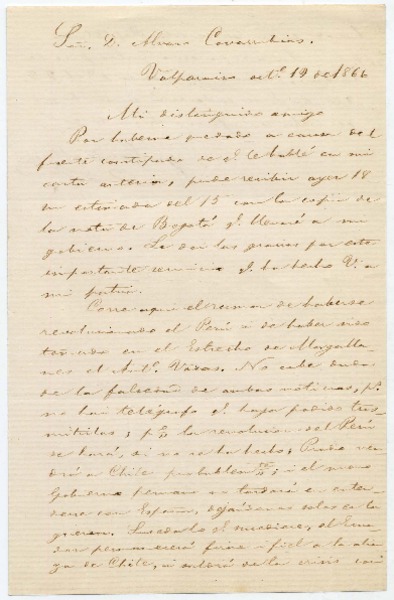 Señ. D. Alvaro Covarrubias.
Valparaiso oct.e 19 de 1866
Mi distinguido amigo
Por haberme quedado a causa del
fuerte constipado de q.e le hablé en mi
carta anterior, pude recibir ayer 18
su estimada del 15 con la copia de
la nota de Bogotá q.e llevaré a mi
gobierno. Le doi las gracias por este
importante servicio q.e ha hecho V. a
mi patria.
Corre aqui el rumor de haberse
revolucionado el Perú i de haber sido
tomado en el Estrecho de Magalla-
nes el Ant.o Varas. No cabe duda
de la falsedad de ambas noticias, p.s
no hai telégrafo q.e haya podido tras-
mitirlas; p.o la revolucion del Perú
se hará, si no se ha hecho; Prado ven-
drá a Chile probablem.te; i el nuevo
Gobierno peruano no tardará en enten-
derse con España, dejándonos solos en la
guerra. Suceda lo q.e sucediere, el Ecua-
dor permanecerá firme i fiel a la alian-
za de Chile, i saldrá de la crisis con